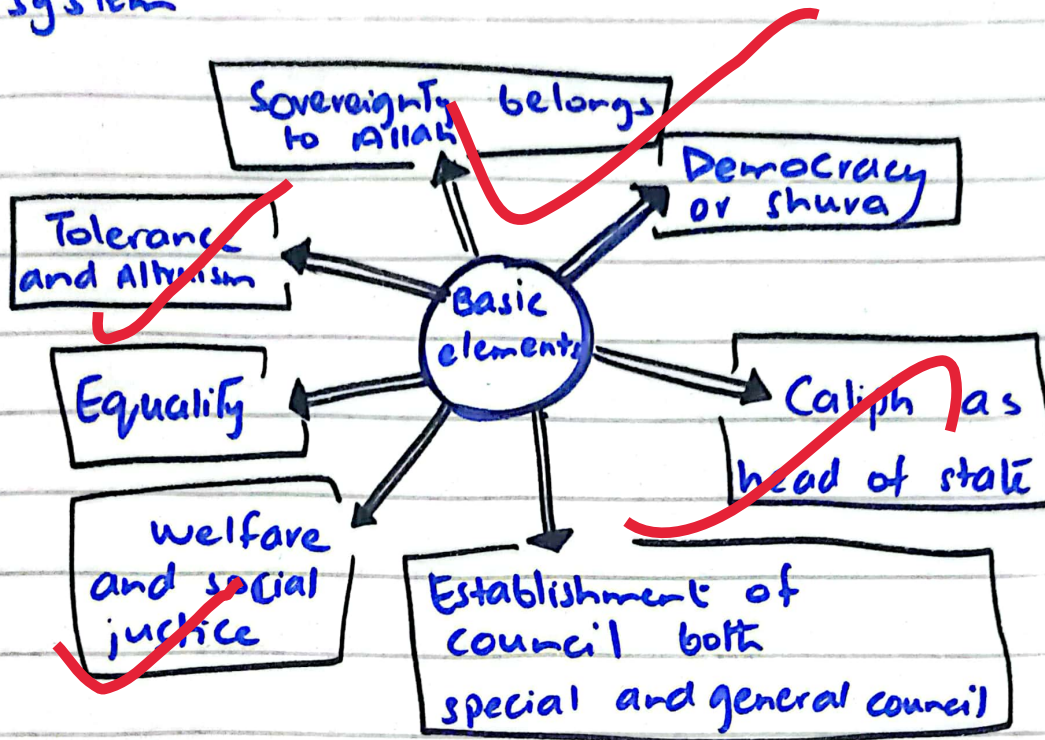 system
Sovereignty belongs
to Allah
Democracy
or shura
Tolerance
and Altruism
Basic
elements
Equality
Caliph as
head of state
welfare
and social
justice
Establishment of
council both
special and general council